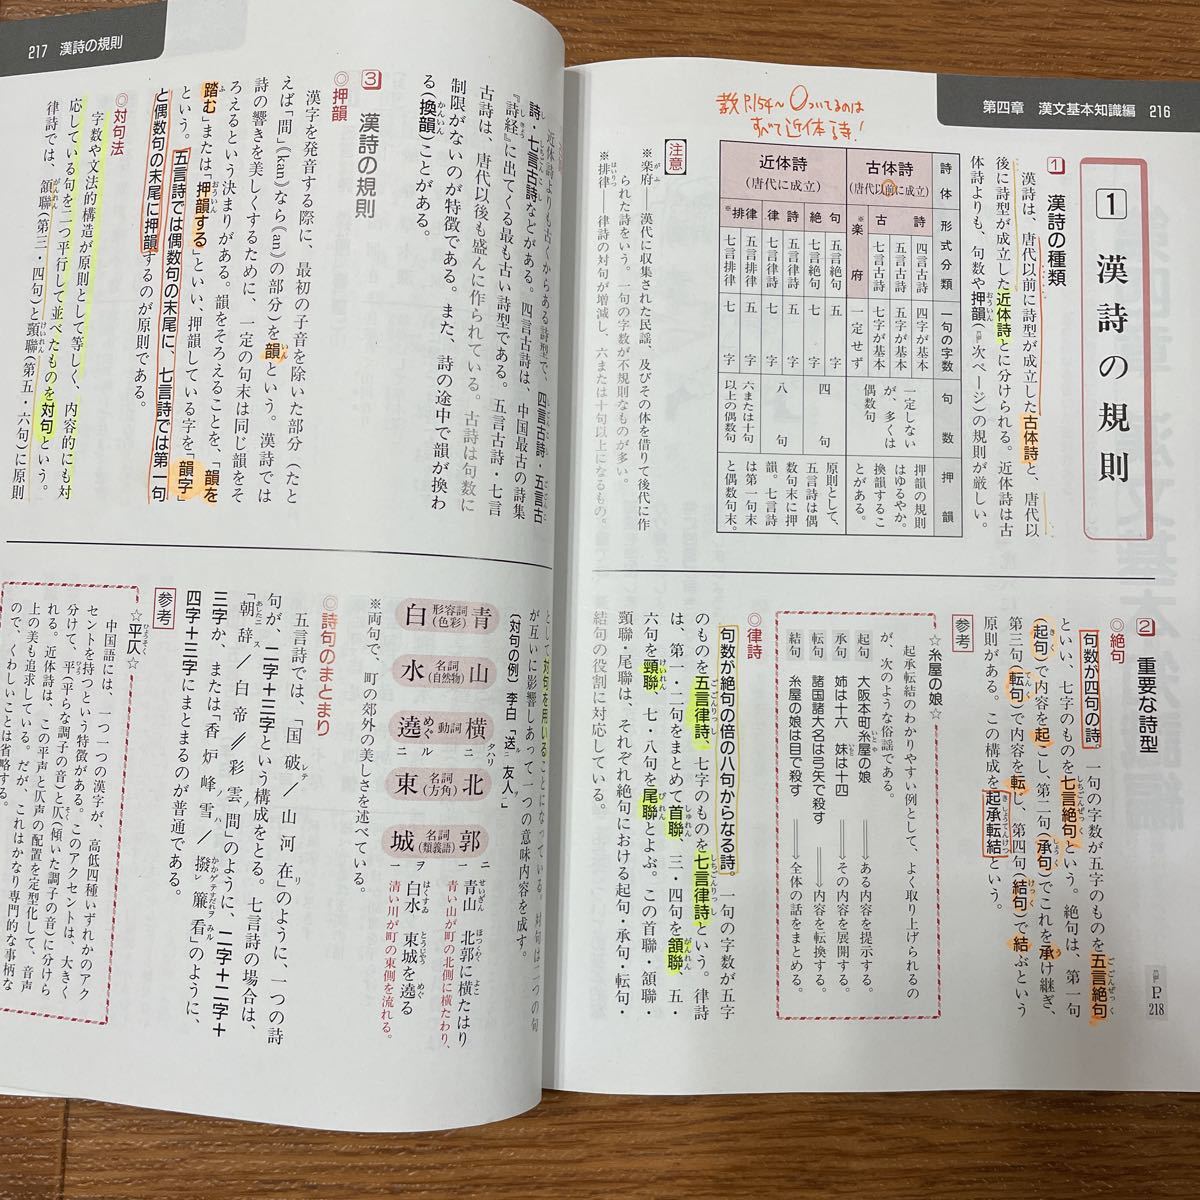 第四章 漢文基本知識編 216
1 漢詩の規則
1 漢詩の種類
漢詩は、唐代以前に詩型が成立した古体詩と、唐代以
後に詩型が成立した近体詩とに分けられる。近体詩は古
体詩よりも、句数や押韻(次ページ)の規則が厳しい。
教P.154~〇ついてるのは
すべて近体詩!
詩体 形式分類 一句の字数 句数 押韻
古体詩(唐代以前に成立)
古詩
四言古詩 四字が基本
五言古詩 五字が基本
七言古詩 七字が基本
※楽府 一定せず
一定しないが、多くは偶数句
押韻の規則はゆるやか。換韻することがある。
近体詩(唐代に成立)
絶句
五言絶句 五字
七言絶句 七字
四句
律詩
五言律詩 五字
七言律詩 七字
八句
※排律
五言排律 五字
七言排律 七字
六または十句以上の偶数句
原則として、五言詩は偶数句末に押韻。七言詩は第一句末と偶数句末。
注意
※楽府──漢代に収集された民謡、及びその体を借りて後代に作
られた詩をいう。一句の字数が不規則なものが多い。
※排律──律詩の対句が増減し、六または十句以上になるもの。
2 重要な詩型 P.218
◎絶句
句数が四句の詩。一句の字数が五字のものを五言絶句
といい、七字のものを七言絶句という。絶句は、第一句
(起句)で内容を起こし、第二句(承句)でこれを承け継ぎ、
第三句(転句)で内容を転じ、第四句(結句)で結ぶという
原則がある。この構成を起承転結という。
参考
☆糸屋の娘☆
起承転結のわかりやすい例として、よく取り上げられるの
が、次のような俗謡である。
起句 大阪本町糸屋の娘 ══ある内容を提示する。
承句 姉は十六 妹は十四 ══その内容を展開する。
転句 諸国諸大名は弓矢で殺す ══内容を転換する。
結句 糸屋の娘は目で殺す ══全体の話をまとめる。
◎律詩
句数が絶句の倍の八句からなる詩。一句の字数が五字
のものを五言律詩、七字のものを七言律詩という。律詩
は、第一・二句をまとめて首聯、三・四句を頷聯、五・
六句を頸聯、七・八句を尾聯とよぶ。この首聯・頷聯・
頸聯・尾聯は、それぞれ絶句における起句・承句・転句・
結句の役割に対応している。
217 漢詩の規則
近体詩よりも古くからある詩型で、四言古詩・五言古
詩・七言古詩などがある。四言古詩は、中国最古の詩集
『詩経』に出てくる最も古い詩型である。五言古詩・七言
古詩は、唐代以後も盛んに作られている。古詩は句数に
制限がないのが特徴である。また、詩の途中で韻が換わ
る(換韻)ことがある。
3 漢詩の規則
◎押韻
漢字を発音する際に、最初の子音を除いた部分(たと
えば「間」(kan)なら(an)の部分)を韻という。漢詩では
詩の響きを美しくするために、一定の句末は同じ韻をそ
ろえるという決まりがある。韻をそろえることを、「韻を
踏む」または「押韻する」といい、押韻している字を「韻字」
という。五言詩では偶数句の末尾に、七言詩では第一句
と偶数句の末尾に押韻するのが原則である。
◎対句法
字数や文法的構造が原則として等しく、内容的にも対
応している句を二つ平行して並べたものを対句という。
律詩では、頷聯(第三・四句)と頸聯(第五・六句)に原則
として対句を用いることになっている。対句は一つの句
が互いに影響しあって一つの意味内容を成す。
〔対句の例〕李白「送友人」
青 形容詞(色彩) 白
山 名詞(自然物) 水
横タハリ 動詞 遶めぐル
北ニ 名詞(方角) 東ニ
郭ニ 名詞(類義語) 城ヲ
青山 北郭に横たはり
青い山が町の北側に横たわり、
白水 東城を遶る
清い川が町の東側を流れる。
※両句で、町の郊外の美しさを述べている。
◎詩句のまとまり
五言詩では、「国破レテ/山河在」のように、一つの詩
句が、二字+三字という構成をとる。七言詩の場合は、
「朝辞ス/白帝/彩雲ノ間」のように、二字+二字+
三字か、または「香炉峰ノ雪ハ/撥簾ヲ看ル」のように、
四字+三字にまとまるのが普通である。
参考
☆平仄☆
中国語には、一つ一つの漢字が、高低四種いずれかのアク
セントを持つという特徴がある。このアクセントは、大きく
分けて、平(平らな調子の音)と仄(傾いた調子の音)に分けら
れる。近体詩は、この平声と仄声の配置を定型化して、音声
上の美も追求している。だが、これはかなり専門的な事柄な
ので、くわしいことは省略する。